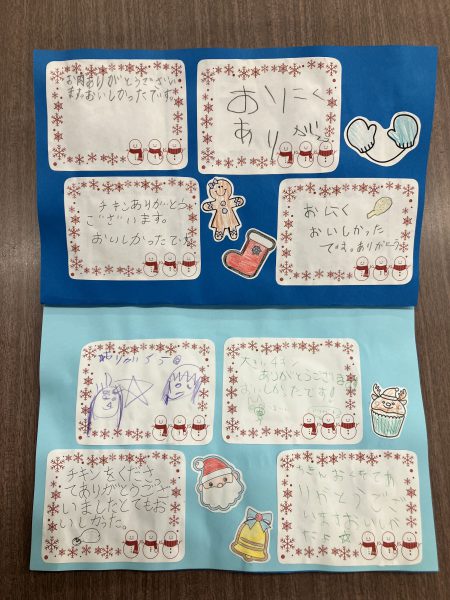 お肉ありがとうござい
ましたおいしかったです。
おりにく
あり
チキンありがとう
ございます。
おいしかったです
おにく
おいしかった
です。ありがとう
ありがとう
大きいチキン
ありがとうございます
おいしかったです!
チキンをくださっ
てありがとうござ
いましたとてもお
いしかった。
ちきんおくってくれてあ
りがとうござ
いますおいしかっ
たよ